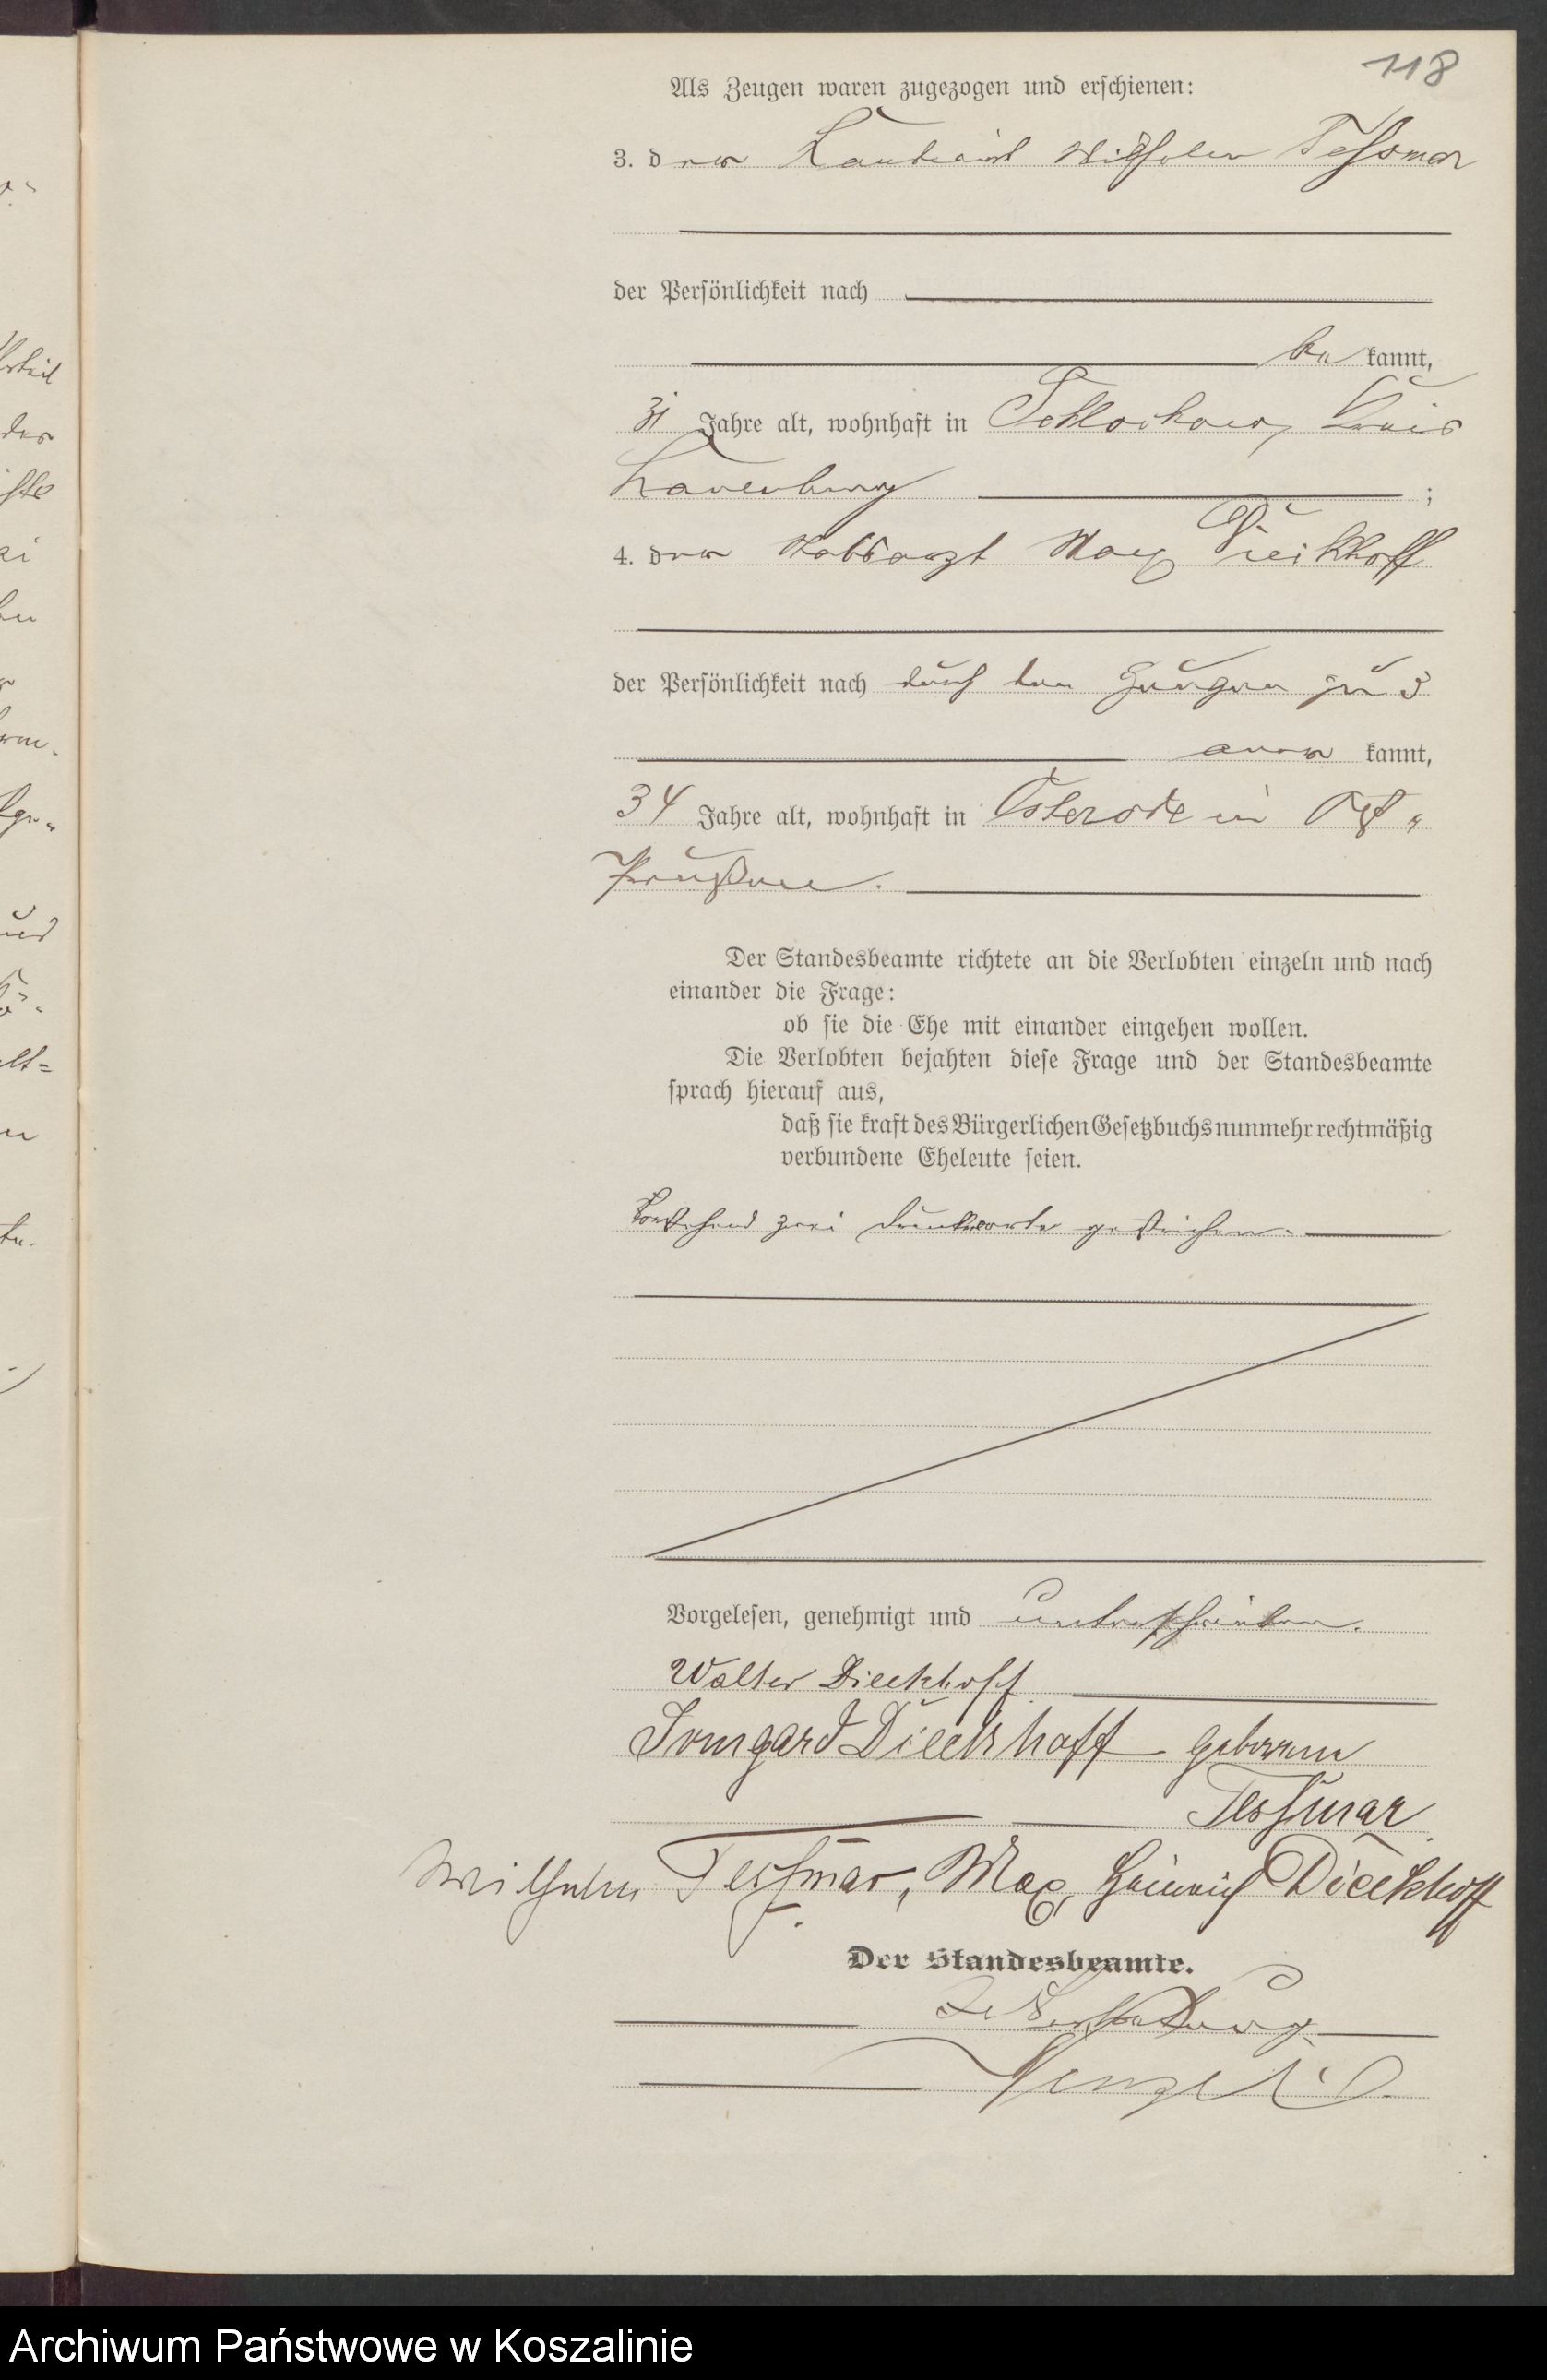 118
Als Zeugen waren zugezogen und erschienen:
3. der Landwirt Wilhelm Tessmar
der Persönlichkeit nach
be kannt,
31 Jahre alt, wohnhaft in Schlochow, Kreis
Lauenburg ;
4. der Stabsarzt Max Dieckhoff
der Persönlichkeit nach durch den Zeugen zu 3
aner kannt,
34 Jahre alt, wohnhaft in Osterode in Ost-
Preußen.
Der Standesbeamte richtete an die Verlobten einzeln und nach
einander die Frage:
ob sie die Ehe mit einander eingehen wollen.
Die Verlobten bejahten diese Frage und der Standesbeamte
sprach hierauf aus,
daß sie kraft des Bürgerlichen Gesetzbuchs nunmehr rechtmäßig
verbundene Eheleute seien.
Vorstehend zwei Druckworte gestrichen.
Vorgelesen, genehmigt und unterschrieben.
Walter Dieckhoff
Irmgard Dieckhoff geborene
Tessmar
Wilhelm Tessmar, Max, Heinrich Dieckhoff
Der Standesbeamte.
In Vertretung
Archiwum Państwowe w Koszalinie